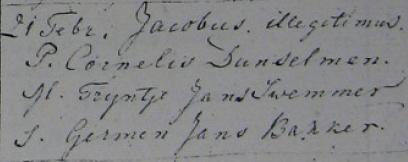 21 Febr. Jacobus. illegitimus.
P. Cornelis Dunselmen.
M. Tryntje Jans Swemmer
S. Germen Jans Bakker.